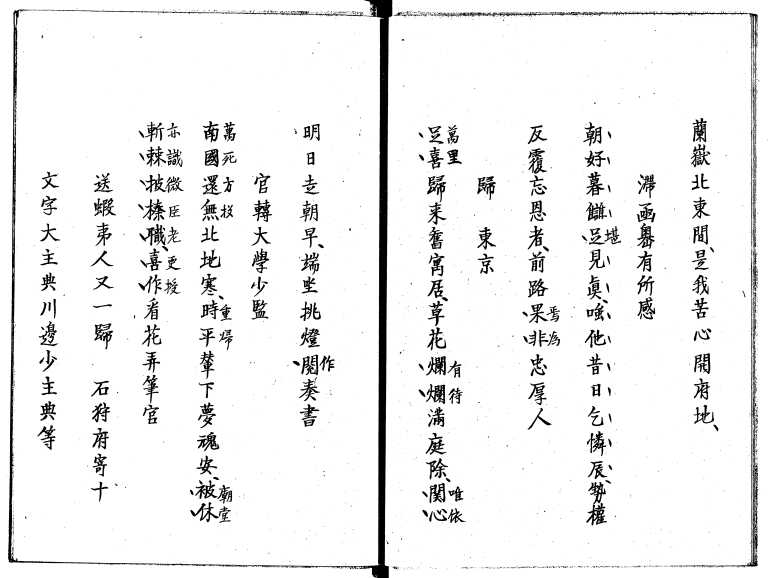 蘭嶽北東間、是我苦心開府地、
滯函舘有所感
朝好暮讎足見眞、嗤他昔日乞憐辰、勢權
堪
反覆忘恩者、前路果非忠厚人
焉為
歸東京
足喜歸来奮寓居、草花爛爛滿庭除、関心
萬里
有待
唯依
明日走朝早、端坐挑燈閲奏書
作
官轉大學少監
南國還無北地寒、時平輦下夢魂安、被休
萬死方投
重帰
廟堂
斬棘披榛職、喜作看花弄筆官
亦識微臣老更授
送蝦夷人又一歸　石狩府寄十
文字大主典川邊少主典等